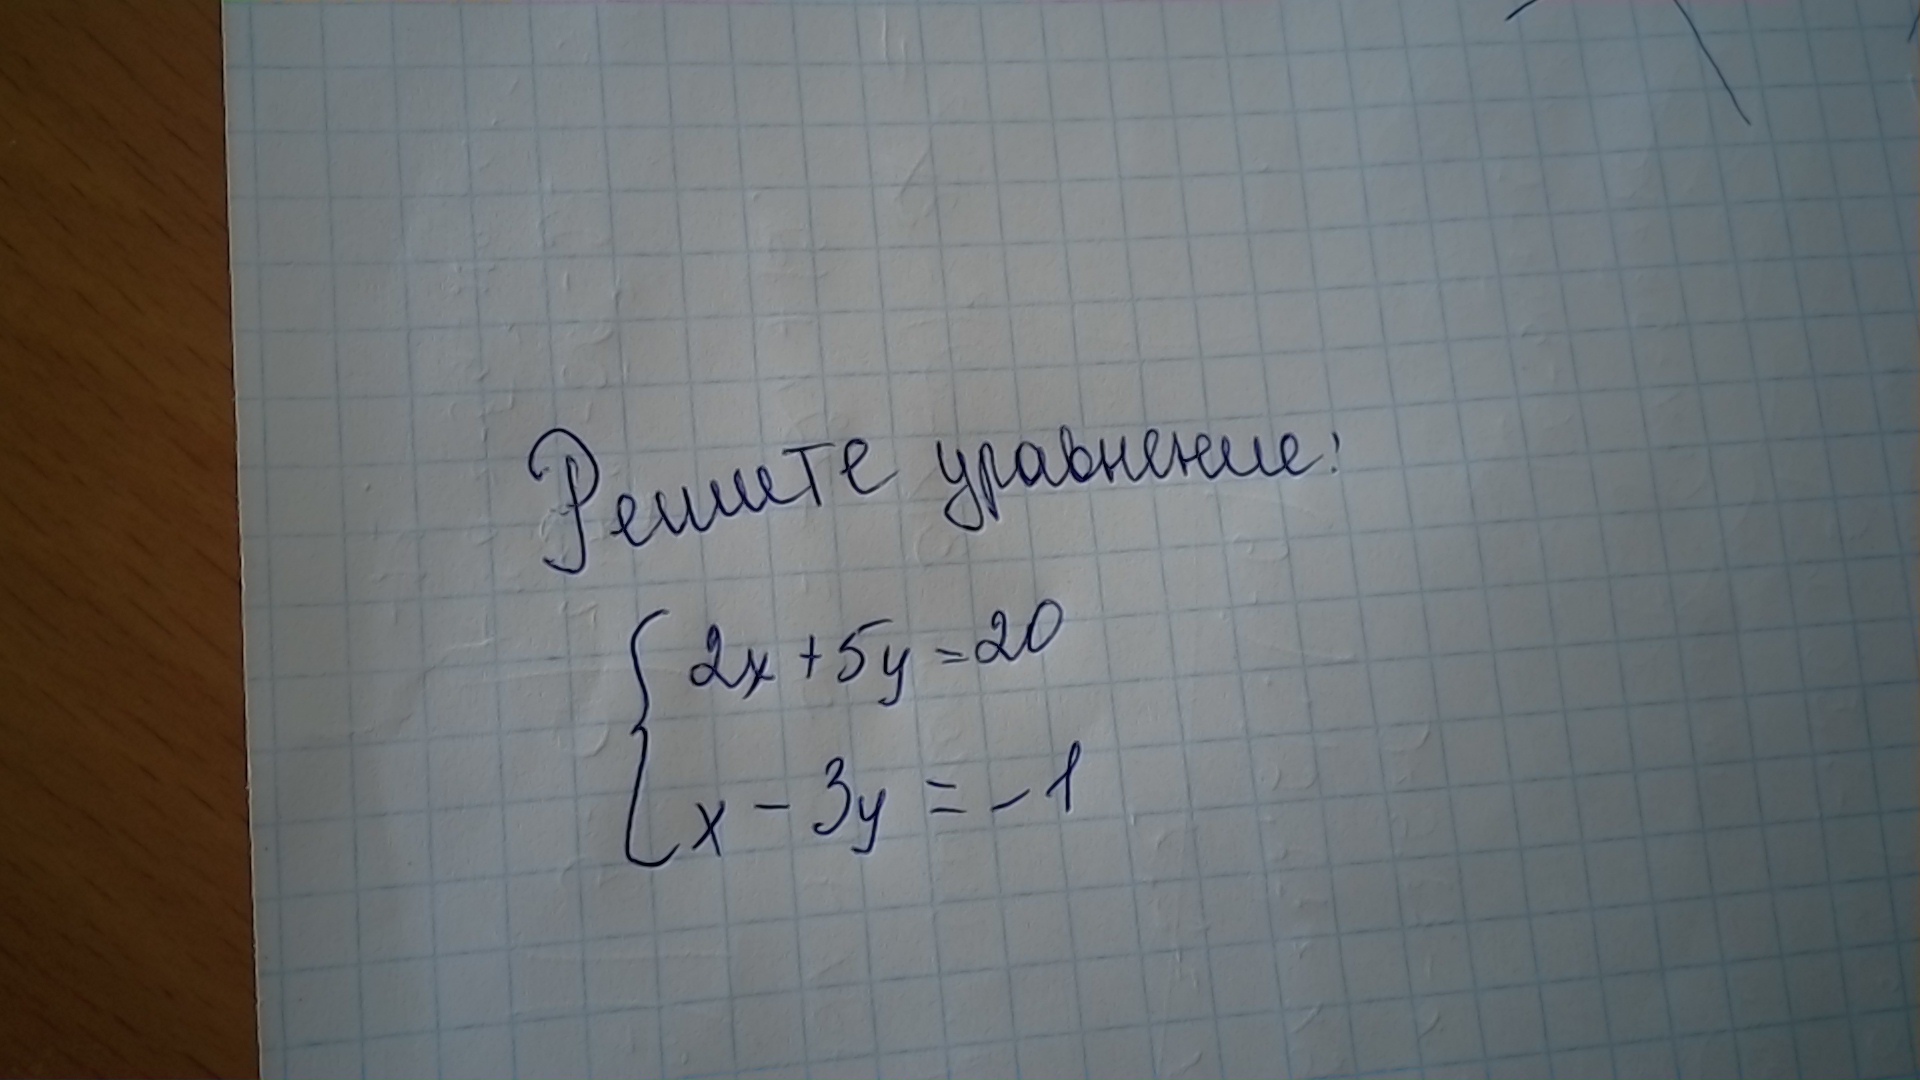 Решите уравнение:
2x + 5y = 20
x - 3y = -1